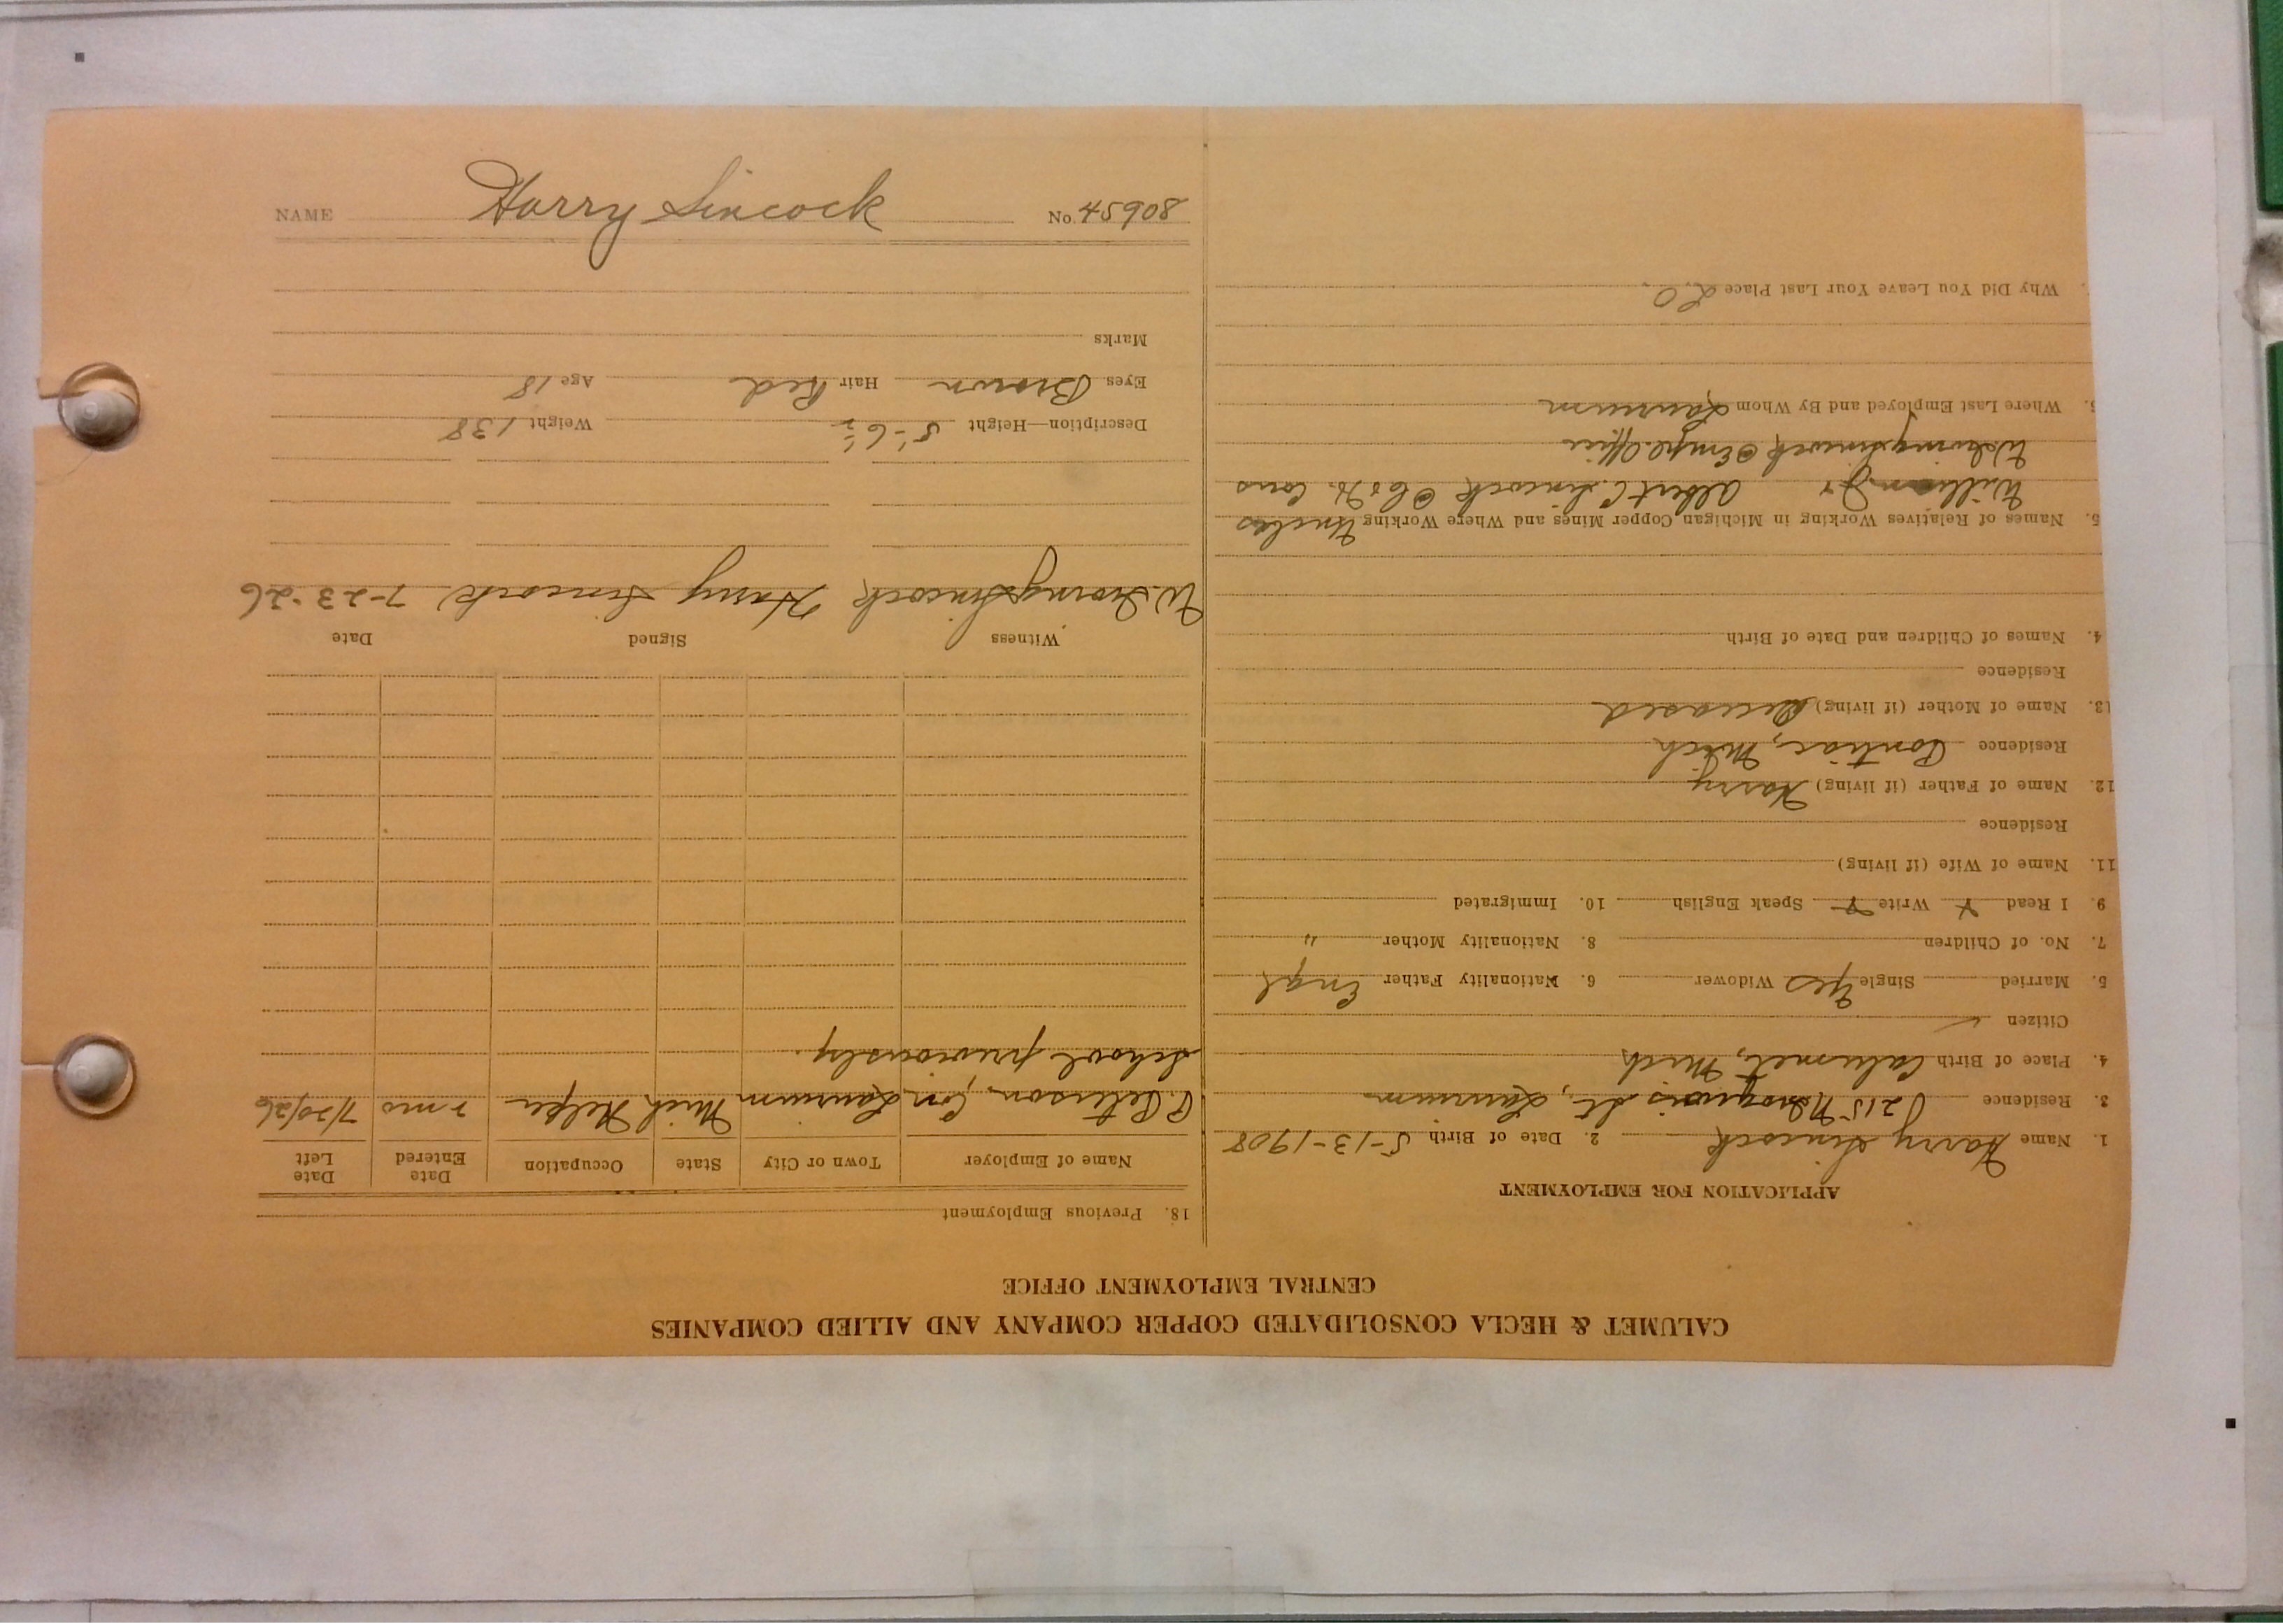 CALUMET & HECLA CONSOLIDATED COPPER COMPANY AND ALLIED COMPANIES
CENTRAL EMPLOYMENT OFFICE
APPLICATION FOR EMPLOYMENT
1. Name Harry Lincock 2. Date of Birth 5-13-1908
3. Residence 215 N Iroquois St, Laurium
4. Place of Birth Calumet, Mich
Citizen ✓
5. Married Single Yes Widower 6. Nationality Father Engl
7. No. of Children 8. Nationality Mother "
9. I Read Y Write Y Speak English 10. Immigrated
11. Name of Wife (if living)
Residence
12. Name of Father (if living) Harry
Residence Pontiac, Mich
13. Name of Mother (if living) Deceased
Residence
4. Names of Children and Date of Birth
5. Names of Relatives Working in Michigan Copper Mines and Where Working Uncles
William Jr Albert C. Lincock @ C & H. Cons
W. Irving Lincock @ Empl. Office
Where Last Employed and By Whom Laurium
Why Did You Leave Your Last Place L.O.
18. Previous Employment
Name of Employer Town or City State Occupation Date Entered Date Left
P. Peterson, Con Laurium Mich Helper 2 mo 7/20/26
School previously.
Witness Signed Date
W. Irving Lincock Harry Lincock 7-23-26
Description—Height 5'-6½" Weight 138
Eyes Brown Hair Red Age 18
Marks
NAME Harry Lincock No. 45908